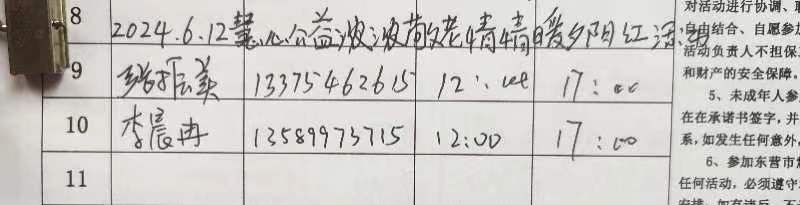 8
2024.6.12慧心公益波波敬老情情暖夕阳红活动
9 张振美 13375462615 12:00 17:00
10 李晨冉 13589973715 12:00 17:00
11
对活动进行协调、
自由结合、自愿参加
活动负责人不担保
和财产的安全保障。
5、未成年人参
在在承诺书签字，并
系，如发生任何意外，
6、参加东营市
任何活动，必须遵守